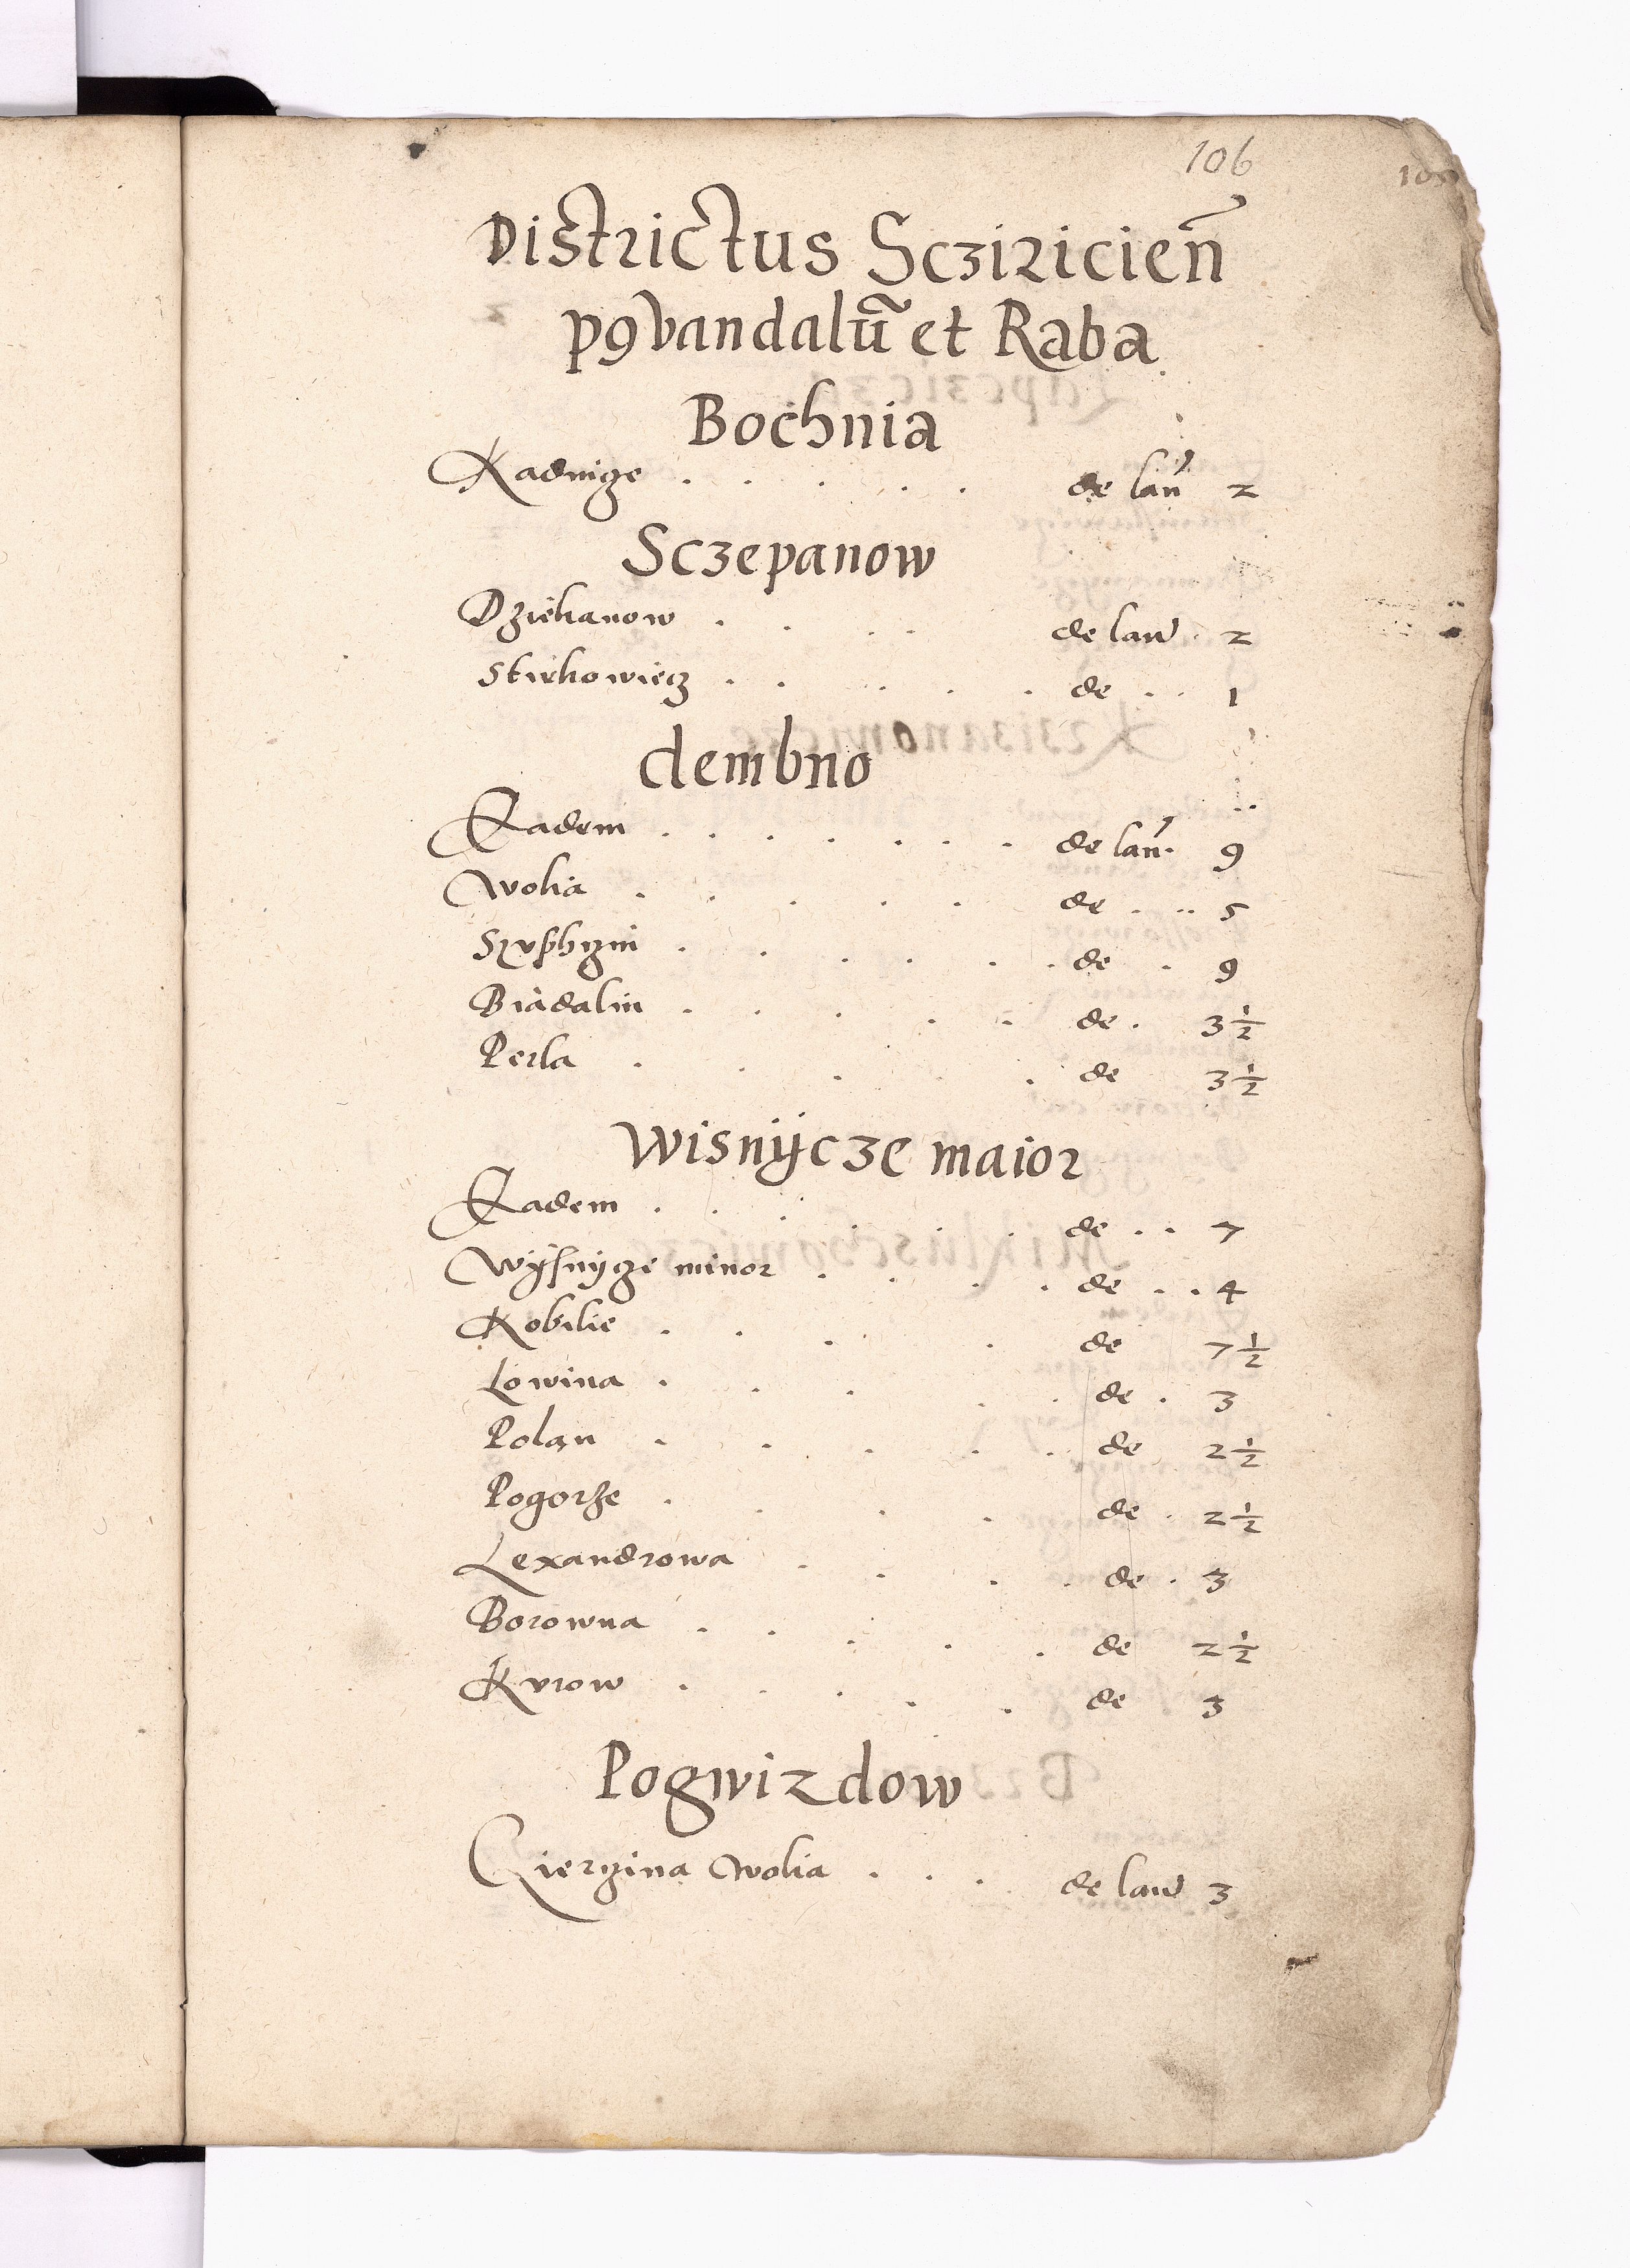 106
Districtus Scziricien̄
p9 vandalū et Raba
Bochnia
Kadnige . . . . . de lan̄ 2
Sczepanow
Dziekanow . . . . de lan̄ 2
Stirkowiecz . . . . . de . . 1
dembno
Eadem . . . . . . . de lan̄ 9
Wolia . . . . . de . . . 5
de . 9
Biadalin . . . . . de . 3 1/2
Perla . . . . . de 3 1/2
Wisnÿcze maior
Eadem . . . . . . de . . 7
Wÿsnÿcze minor . . . . de . . 4
Kobilie . . . . de 7 1/2
Lowina . . . . . de . 3
Polan . . . . . de 2 1/2
Pogorze . . . . de . 2 1/2
Lexandrowa . . . . de . 3
Borowna . . . . . de 2 1/2
Kurow . . . . . de 3
Pogwizdow
Gierzina Wolia . . . . de lan̄ 3